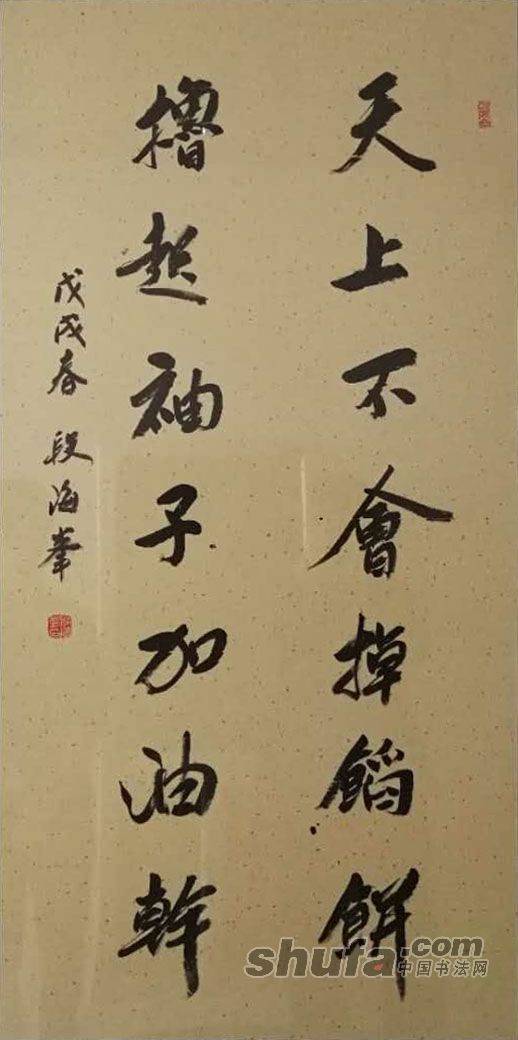 天上不會掉餡餅
擼起袖子加油幹
戊戌春 段海峯
shufa.com
中国书法网